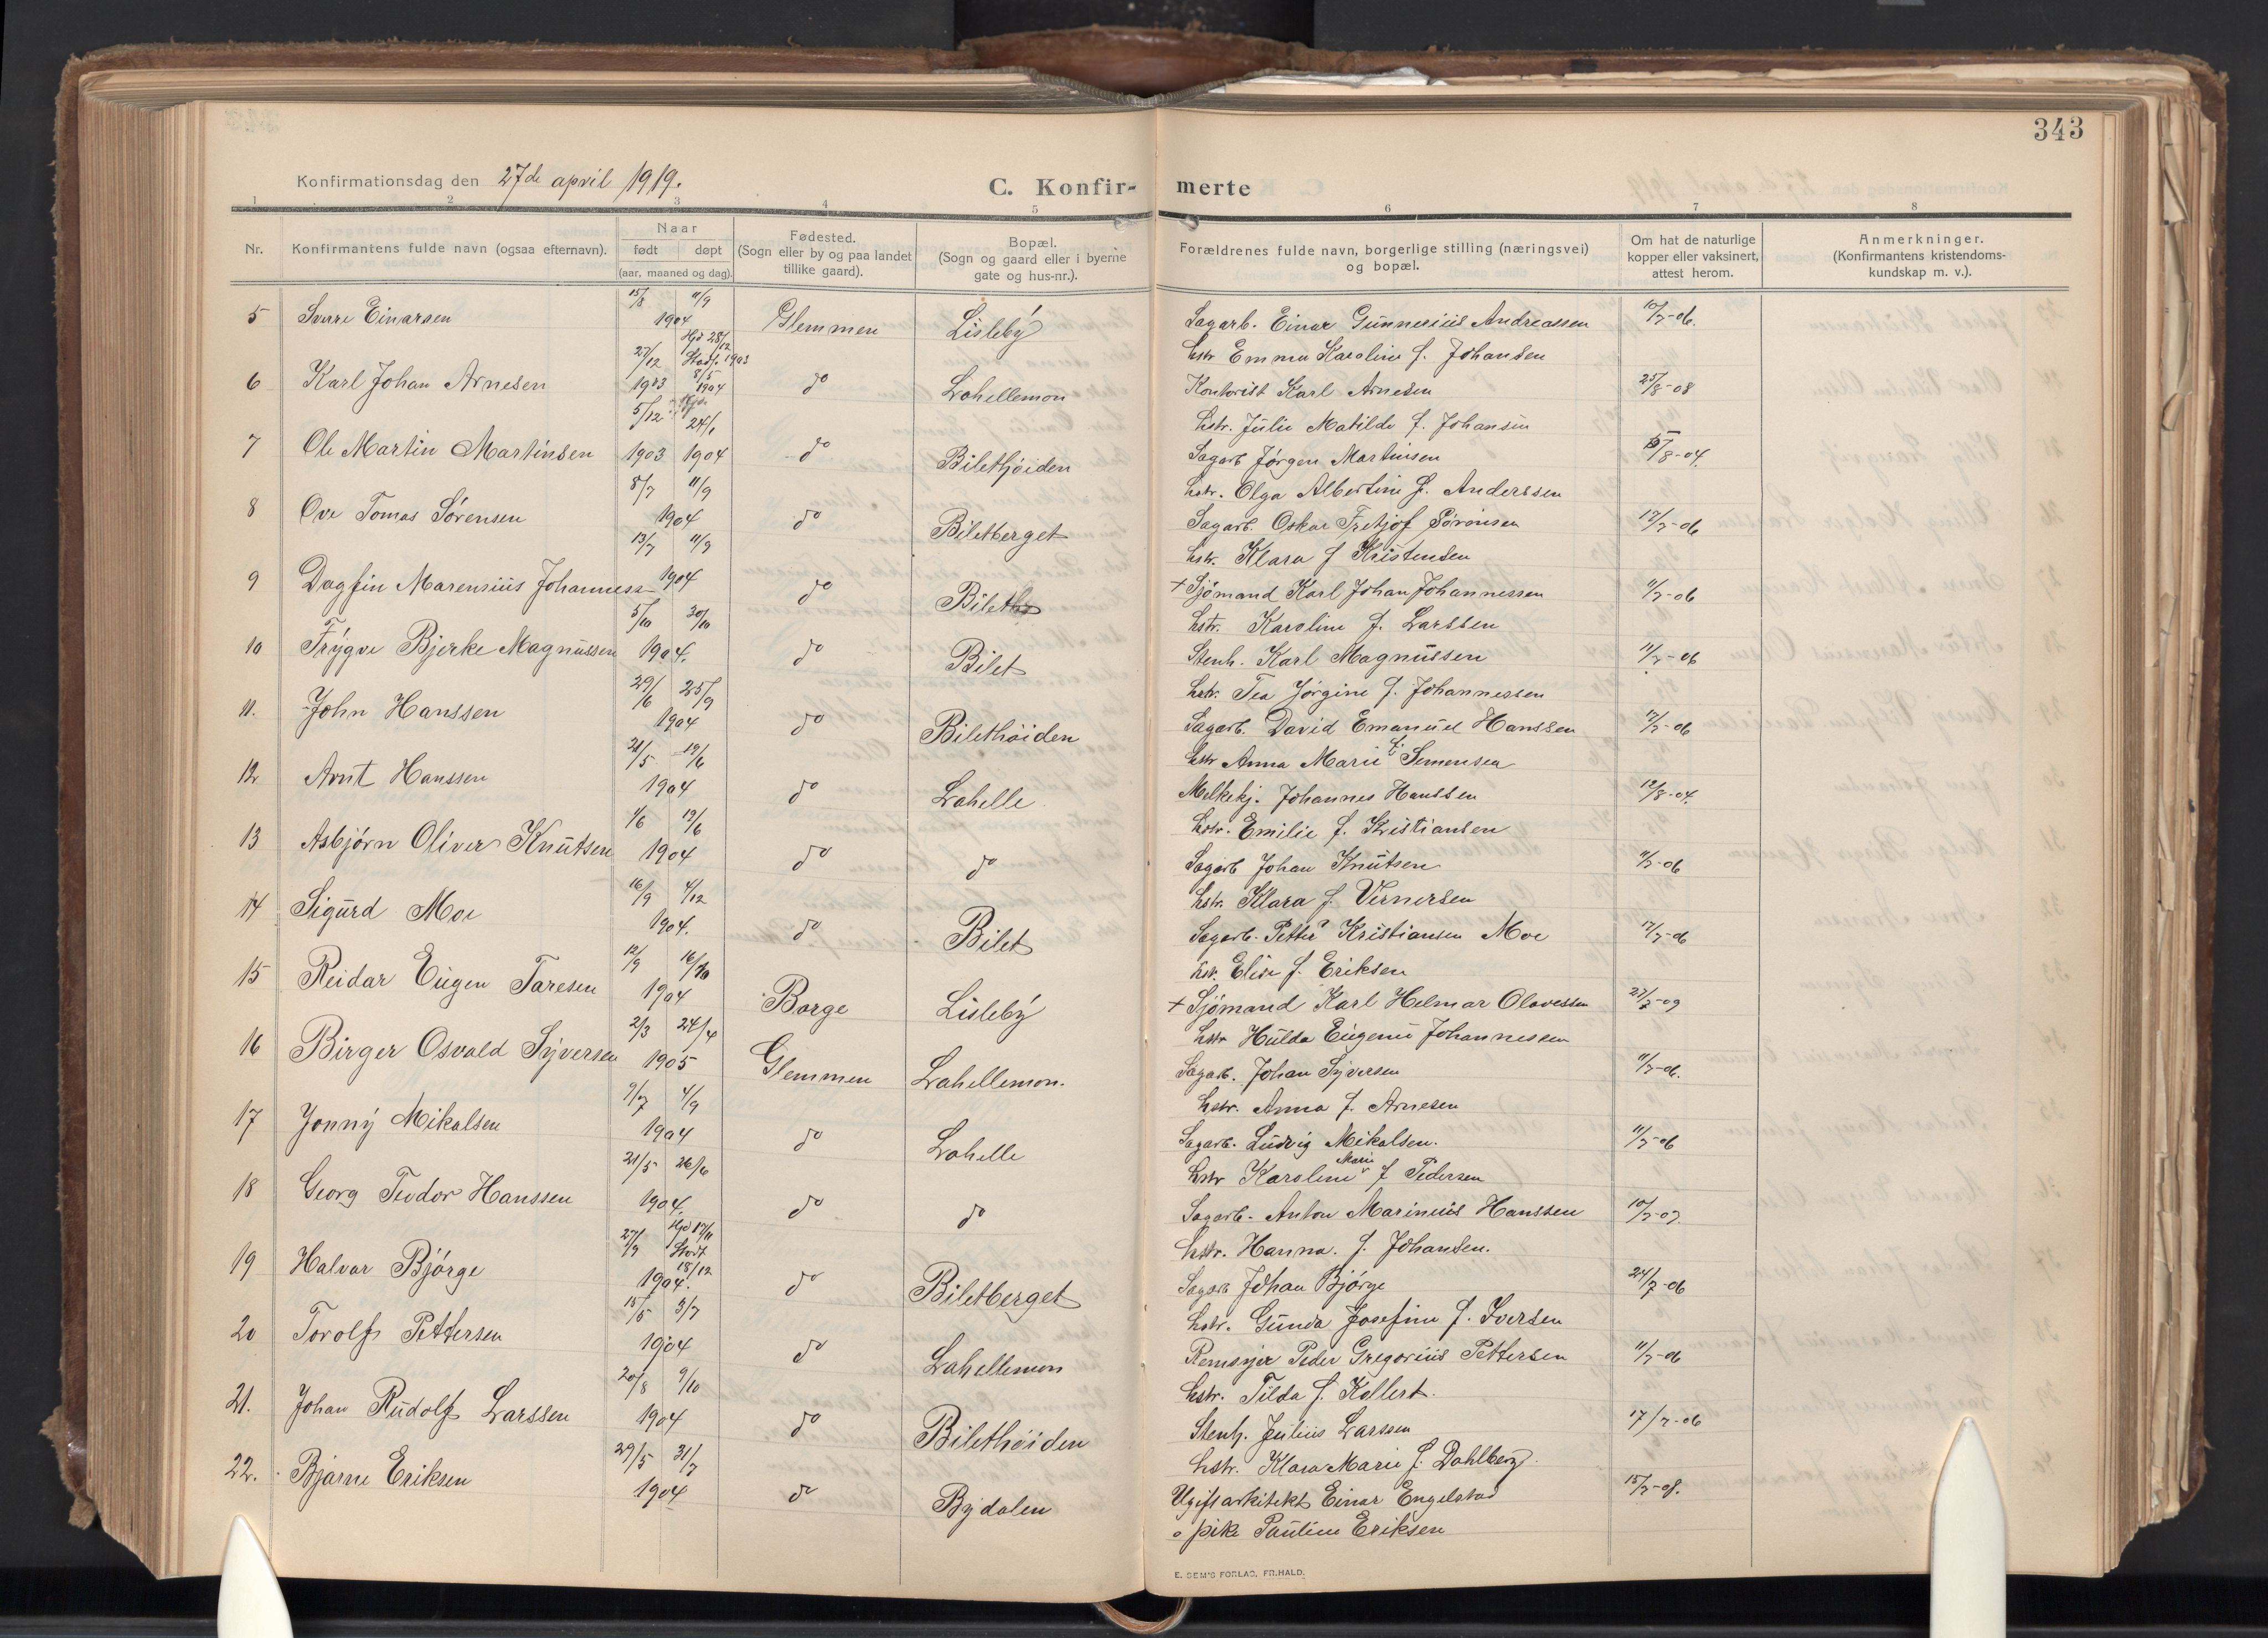 343
Konfirmationsdag den 27de april 1919.
C. Konfir-
merte
1 2 3 4 5 6 7 8
Nr.
Konfirmantens fulde navn (ogsaa efternavn).
Naar
født døpt
(aar, maaned og dag).
Fødested.
(Sogn eller by og paa landet
tillike gaard).
Bopæl.
(Sogn og gaard eller i byerne
gate og hus-nr.).
Forældrenes fulde navn, borgerlige stilling (næringsvei)
og bopæl.
Om hat de naturlige
kopper eller vaksinert,
attest herom.
Anmerkninger.
(Konfirmantens kristendoms-
kundskap m. v.).
5 Sverre Einarsen 15/8 11/9 1904 Glemmen Lisleby Sagarb. Einar Gunnerius Andreassen 10/7-06.
hstr Emma Karoline f. Johansen
6 Karl Johan Arnesen 27/12 1903 Hjd 28/12 1903 Stadf. 8/5 1904 do Lahellemon Kontorist Karl Arnesen 25/8-08
hstr. Julie Matilde f. Johansen
7 Ole Martin Martinsen 5/12 1903 24/1 1904 do Bilethøiden Sagarb Jørgen Martinsen 15/8-04.
hstr. Olga Albertine f. Anderssen
8 Ove Tomas Sørensen 8/7 11/9 1904 do Biletberget Sagarb. Oskar Fretjof Sørensen 17/7-06
hstr. Klara f Kristensen
9 Dagfin Marensius Johanness 13/7 11/9 1904 do Bilet + Sjømand Karl Johan Johannessen 11/7-06
hstr. Karoline f. Larssen
10 Trygve Bjerke Magnussen 5/10 30/10 1904. do Bilet Stenh. Karl Magnussen 11/7-06
hstr. Tea Jørgine f. Johannessen
11. John Hanssen 29/6 25/9 1904 do Bilethöiden Sagarb. David Emanuel Hanssen 17/7-06
hstr Anna Marie f. Simensen
12 Arnt Hanssen 21/5 19/6 1904 do Lahelle Melkekj. Johannes Hanssen 12/8-04.
hstr. Emilie f. Kristiansen
13 Asbjørn Oliver Knutsen 1/6 19/6 1904 do do Sagarb Johan Knutsen 11/7-06
hstr. Klara f. Vernersen
14 Sigurd Moe 16/9 4/12 1904. do Bilet Sagarb. Petter Kristiansen Moe 17/7-06
hstr. Elise f. Eriksen
15 Reidar Eugen Taresen 12/9 16/10 1904 Borge Lisleby + Sjømand Karl Helmar Olavessen 27/7-09
hstr Hulda Eugenie Johannessen
16 Birger Osvald Syversen 2/3 24/4 1905 Glemmen Lahellemon. Sagarb. Johan Syversen 11/7-06.
hstr. Anna f. Arnesen
17 Jonny Mikalsen 9/7 4/9 1904 do Lahelle Sagarb. Ludvig Mikalsen. 11/7-06
hstr Karoline Marie f Pedersen
18 Georg Teodor Hanssen 21/5 26/6 1904. do do Sagarb. Anton Marinius Hanssen 10/7-07.
hstr. Hanna. f. Johansen.
19 Halvar Bjørge 27/9 Hjd 17/11 Stadf 18/12 1904. do Biletberget Sagarb Johan Bjørge 24/7-06
hstr. Gunda Josefine f. Iversen
20 Torolf Pettersen 15/5 3/7 1904 do Lahellemon Remsyer Peder Gregorius Pettersen 11/7-06
hstr. Tilda f. Kollert.
21. Johan Rudolf Larssen 20/8 9/10 1904 do Bilethöiden Stenh. Julius Larssen 17/7-06
hstr. Klara Marie f. Dahlberg.
22. Bjarne Eriksen 29/5 31/7 1904 do Bydalen Ugift arkitekt Einar Engelstad 15/7-08.
o pike Pauline Eriksen
E. SEM'S FORLAG, FR.HALD.